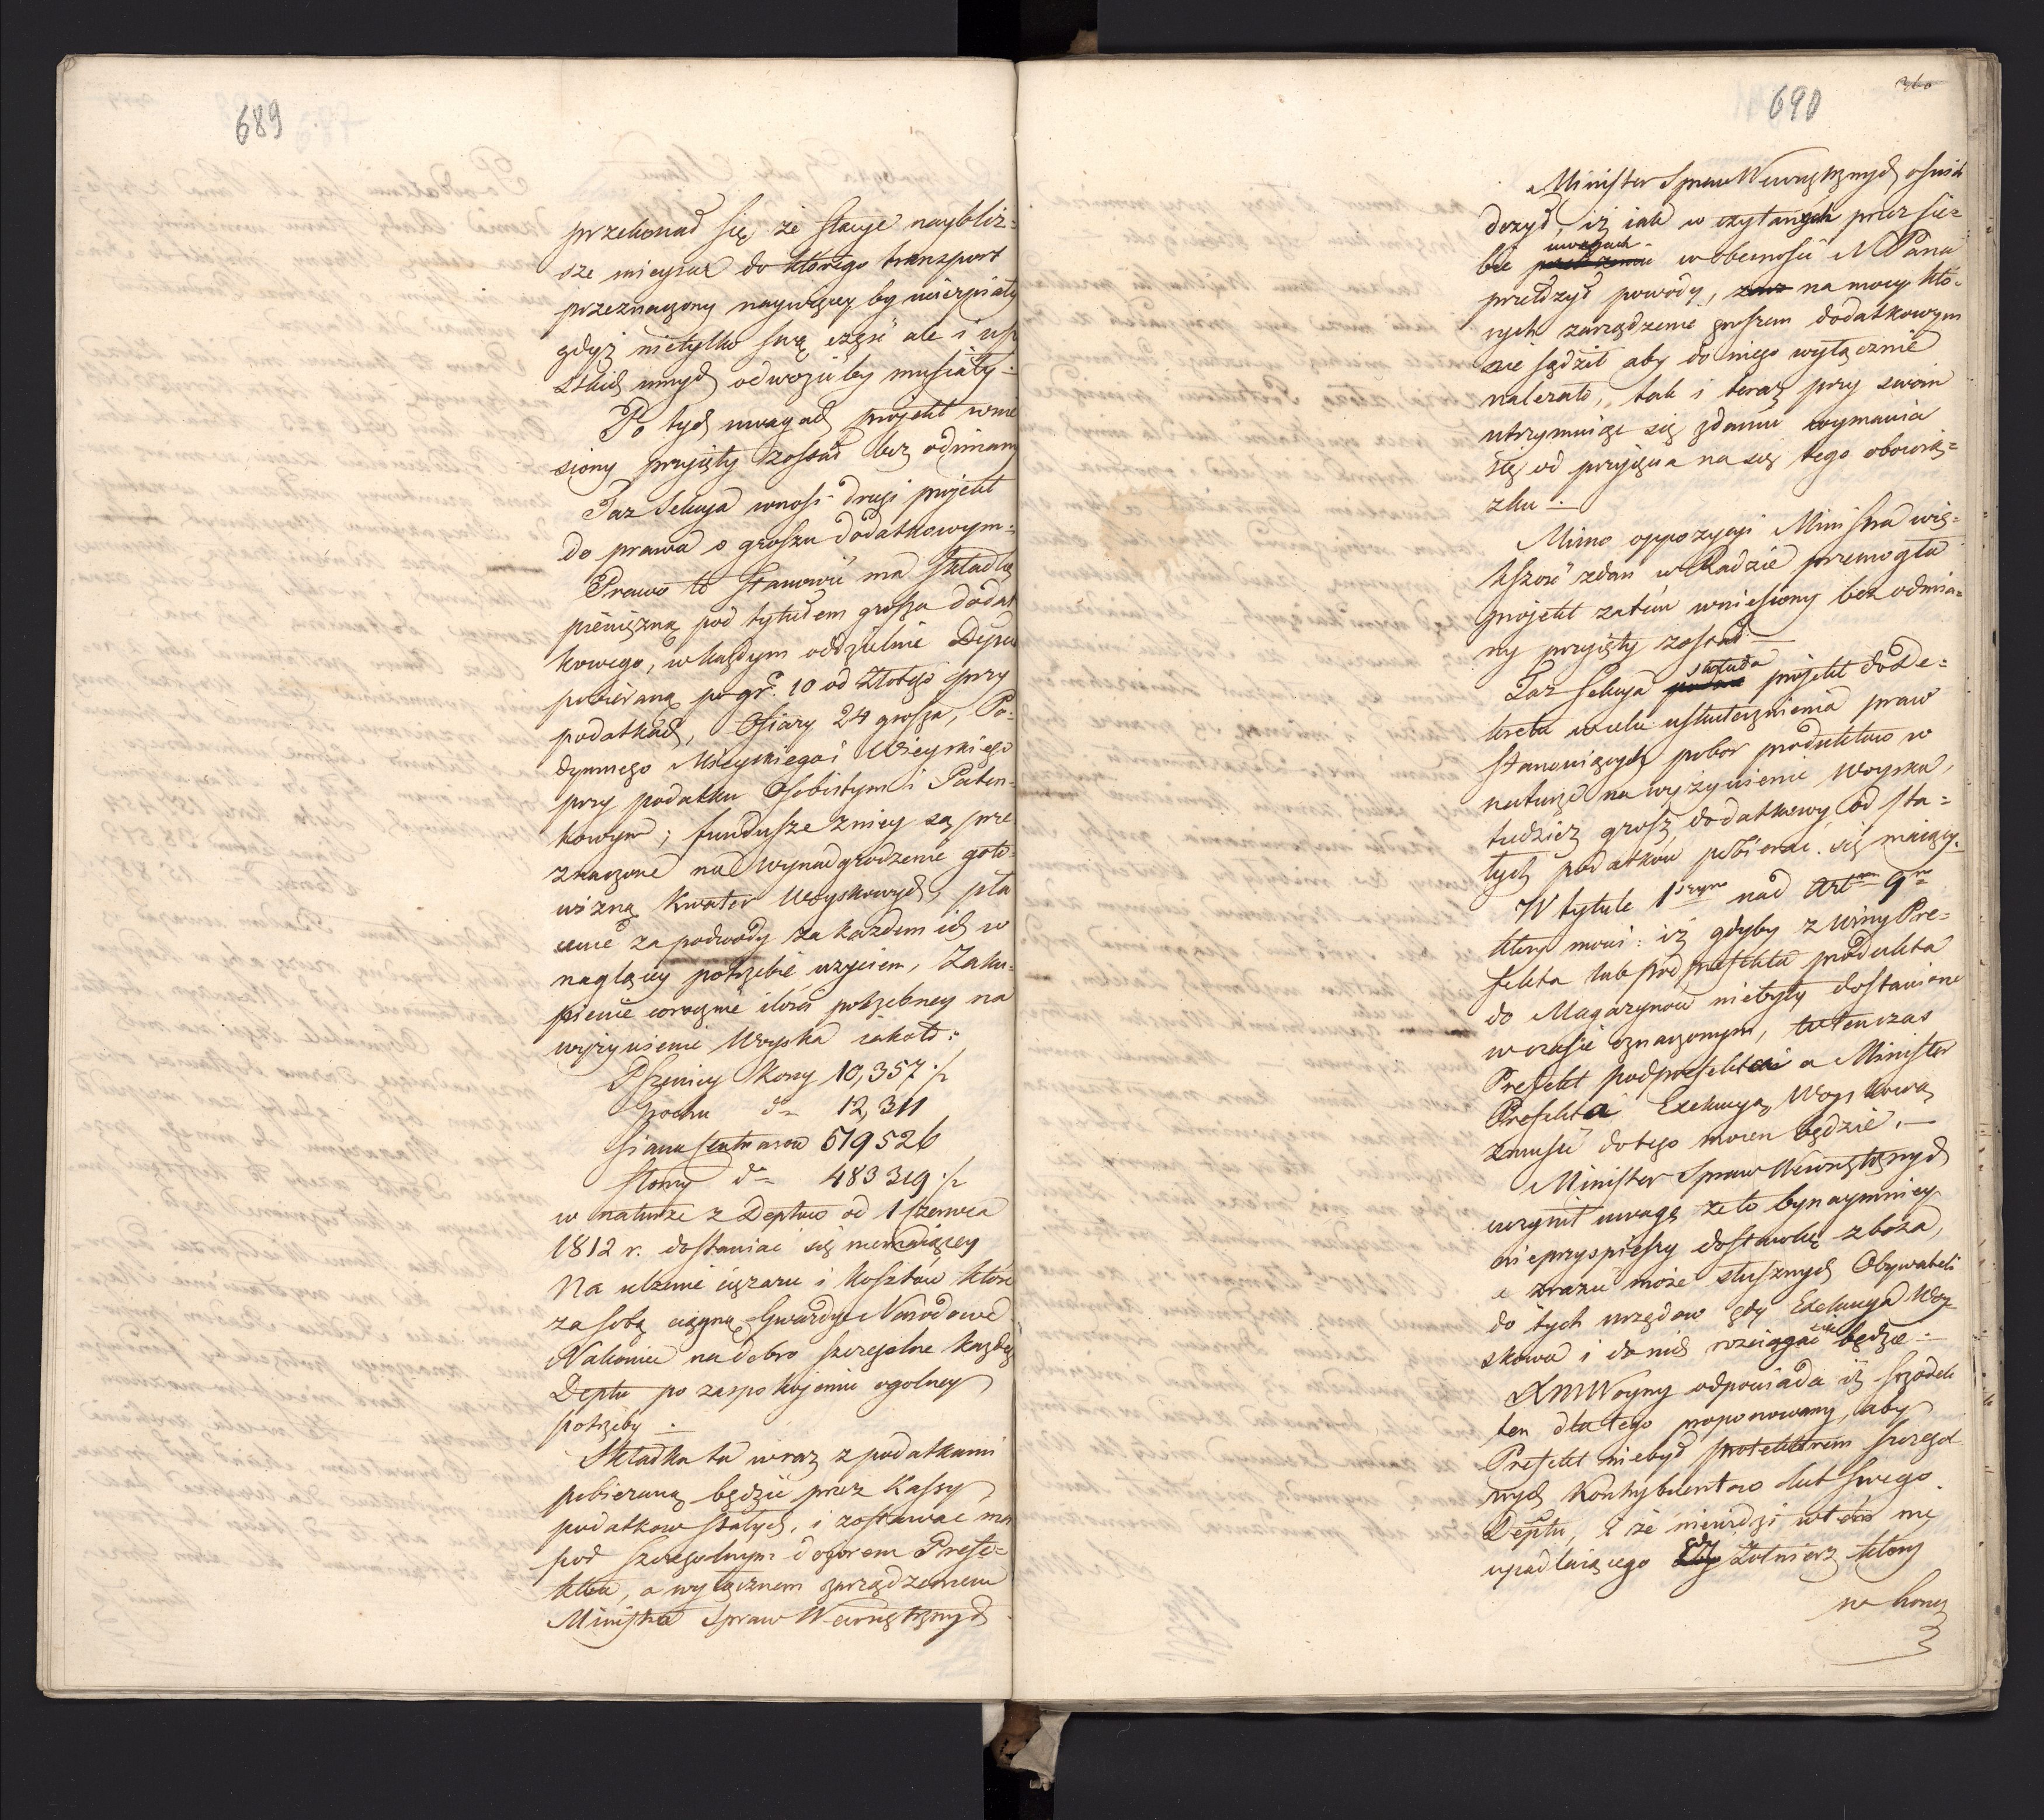 689
przekonał się że stacye naybliż=
sze mieysca do którego transport
przeznaczony naywięcey by ucierpiały
gdyż nietylko swą część ale i
innych odwozić by musiały.
Po tych uwagach projekt wnie
siony przyięty został bez odmiany
Taz Sekcya wnosi drugi projekt
do prawa o groszu dodatkowym.
Prawo to stanowić ma składkę
pieniężną pod tytułem grosza dodat
kowego, w każdym oddzielnie Depcie
pobieraną po gr. 10 od złotego przy
podatkach, Ofiary 24 grosza, Po=
dymnego Mieyskiego i Wieyskiego
przy podatku Osobistym i Paten=
towym; fundusze z niey są prze
znaczone na wynadgrodzenie goto=
wizną kwater Woyskowych, pła
cenie za podwody za każdem ich w
nagłącey potrzebie użyciem, Zaku=
pienie corocznie ilości potrzebney na
wyżywienie Woyska iakoto:
Pszenicy Korcy 10,357 ½
Grochu do 12,311
Siana Centnarow 519526
Słomy do 483319 ½
w naturze z Deptow od 1 Czerwca
1812 r. dostawiać się niemaiącey
Na ulżenie ciężaru i kosztów które
za sobą ciągną Gwardye Narodowe
Nakoniec na dobro szczegolne każdego
Deptu po zaspokojeniu ogolney
potrzeby.
Składka ta wraz z podatkami
pobieraną będzie przez Kassy
podatkow stałych, i zostawać ma
pod szczegolnym dozorem Prefe=
ktow, a wyłącznem zarządzeniem
Ministra Spraw Wewnętrznych
690
360
Minister Spraw Wewnętrznych oświad
dczył, iż iak w czytanych przez sie=
bie uwagach w obecności N Pana
przełożył powody, na mocy któ=
rych zarządzenie groszem dodatkowym
nie sądził aby do niego wyłącznie
należało, tak i teraz przy swoim
utrzymuiąc się zdaniu wymawia
się od przyięcia na się tego obowią=
zku.
Mimo oppozycyi Ministra wię=
kszość zdań w Radzie przemogła
projekt zatém wniesiony bez odmia=
ny przyięty został
Taz Sekcya składa projekt do De=
kretu w celu uskutecznienia praw
stanowiących pobor produktow w
naturze na wyżywienie Woyska,
tudzież grosz dodatkowy od sta=
łych podatków pobierać się maiący.
W tytule 1szym nad Artem 9m
który mowi: iż gdyby z winy Pre=
fekta lub podprefekta produkta
do Magazynow niebyły dostawione
w czasie oznaczonym, tutenczas
Prefekt podprefekta a Minister
Prefekta Exekucyą Woyskową
zmusić do tego mocen będzie.
Minister Spraw Wewnętrznych
uczynił uwagę że to bynaymniey
nieprzyspieszy dostawkę zboża,
a zrazić może słusznych Obywateli
do tych urzędow gdy Exekucya Woy
skowa i do nich rozciągać się będzie.
JXMWoyny odpowiada iż szrodek
ten dla tego proponowany, aby
Prefekt niebył protektorem szczegol
nych kontrybuentow lub swego
Deptu, i że niewidzi w tém nic
upadlaiącego gdy Żołnierz który
w koney